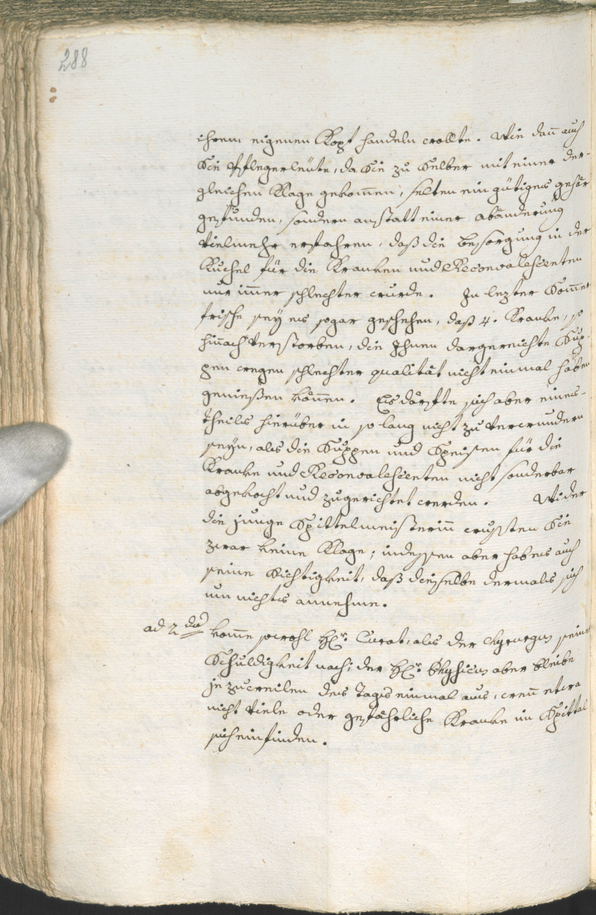 288
ihrem eigenen Kopf handeln wollte. Wie dan̄ auch
Sie Pflegersleüte, da Sie zu Selber mit einer der-
gleichen Klage gekom̄en, selten ein gütiges gehör
gefunden, sondern anstatt einer abänderung
vielmehr erfahren, daß die besorgung in der
Kuchel für die Kranken und Reconvalescenten
nur im̄er schlechter wurde. In lezter Som̄er
frische seÿ es sogar geschehen, daß 4. Kranke, so
hinach verstorben, die Ihnen dargereichte Sup
pen wegen schlechter qualität nicht einmal haben
genießen kön̄en. Es dürfte sich aber eines-
theils hierüber in so lang nicht zu verwundern
seÿn, als die Suppen und Speisen für die
Kranke und Reconvalescenten nicht sonderbar
abgekocht und zugerichtet werden. Wider
die junge Spittelmeisterin̄ wussten Sie
zwar keine Klage; indessen aber habe es auch
seine Richtigkeit, daß dieselbe dermals sich
um nichts annehme.
ad 2dū kom̄e sowohl H: Curat, als der Chyrurgus seiner
Schuldigkeit nach; der H: Physicus aber bleibe
je zuweilen des Tags einmal aus, wen̄ etwa
nicht viele oder gefährliche Kranke im Spittal
sich einfinden.